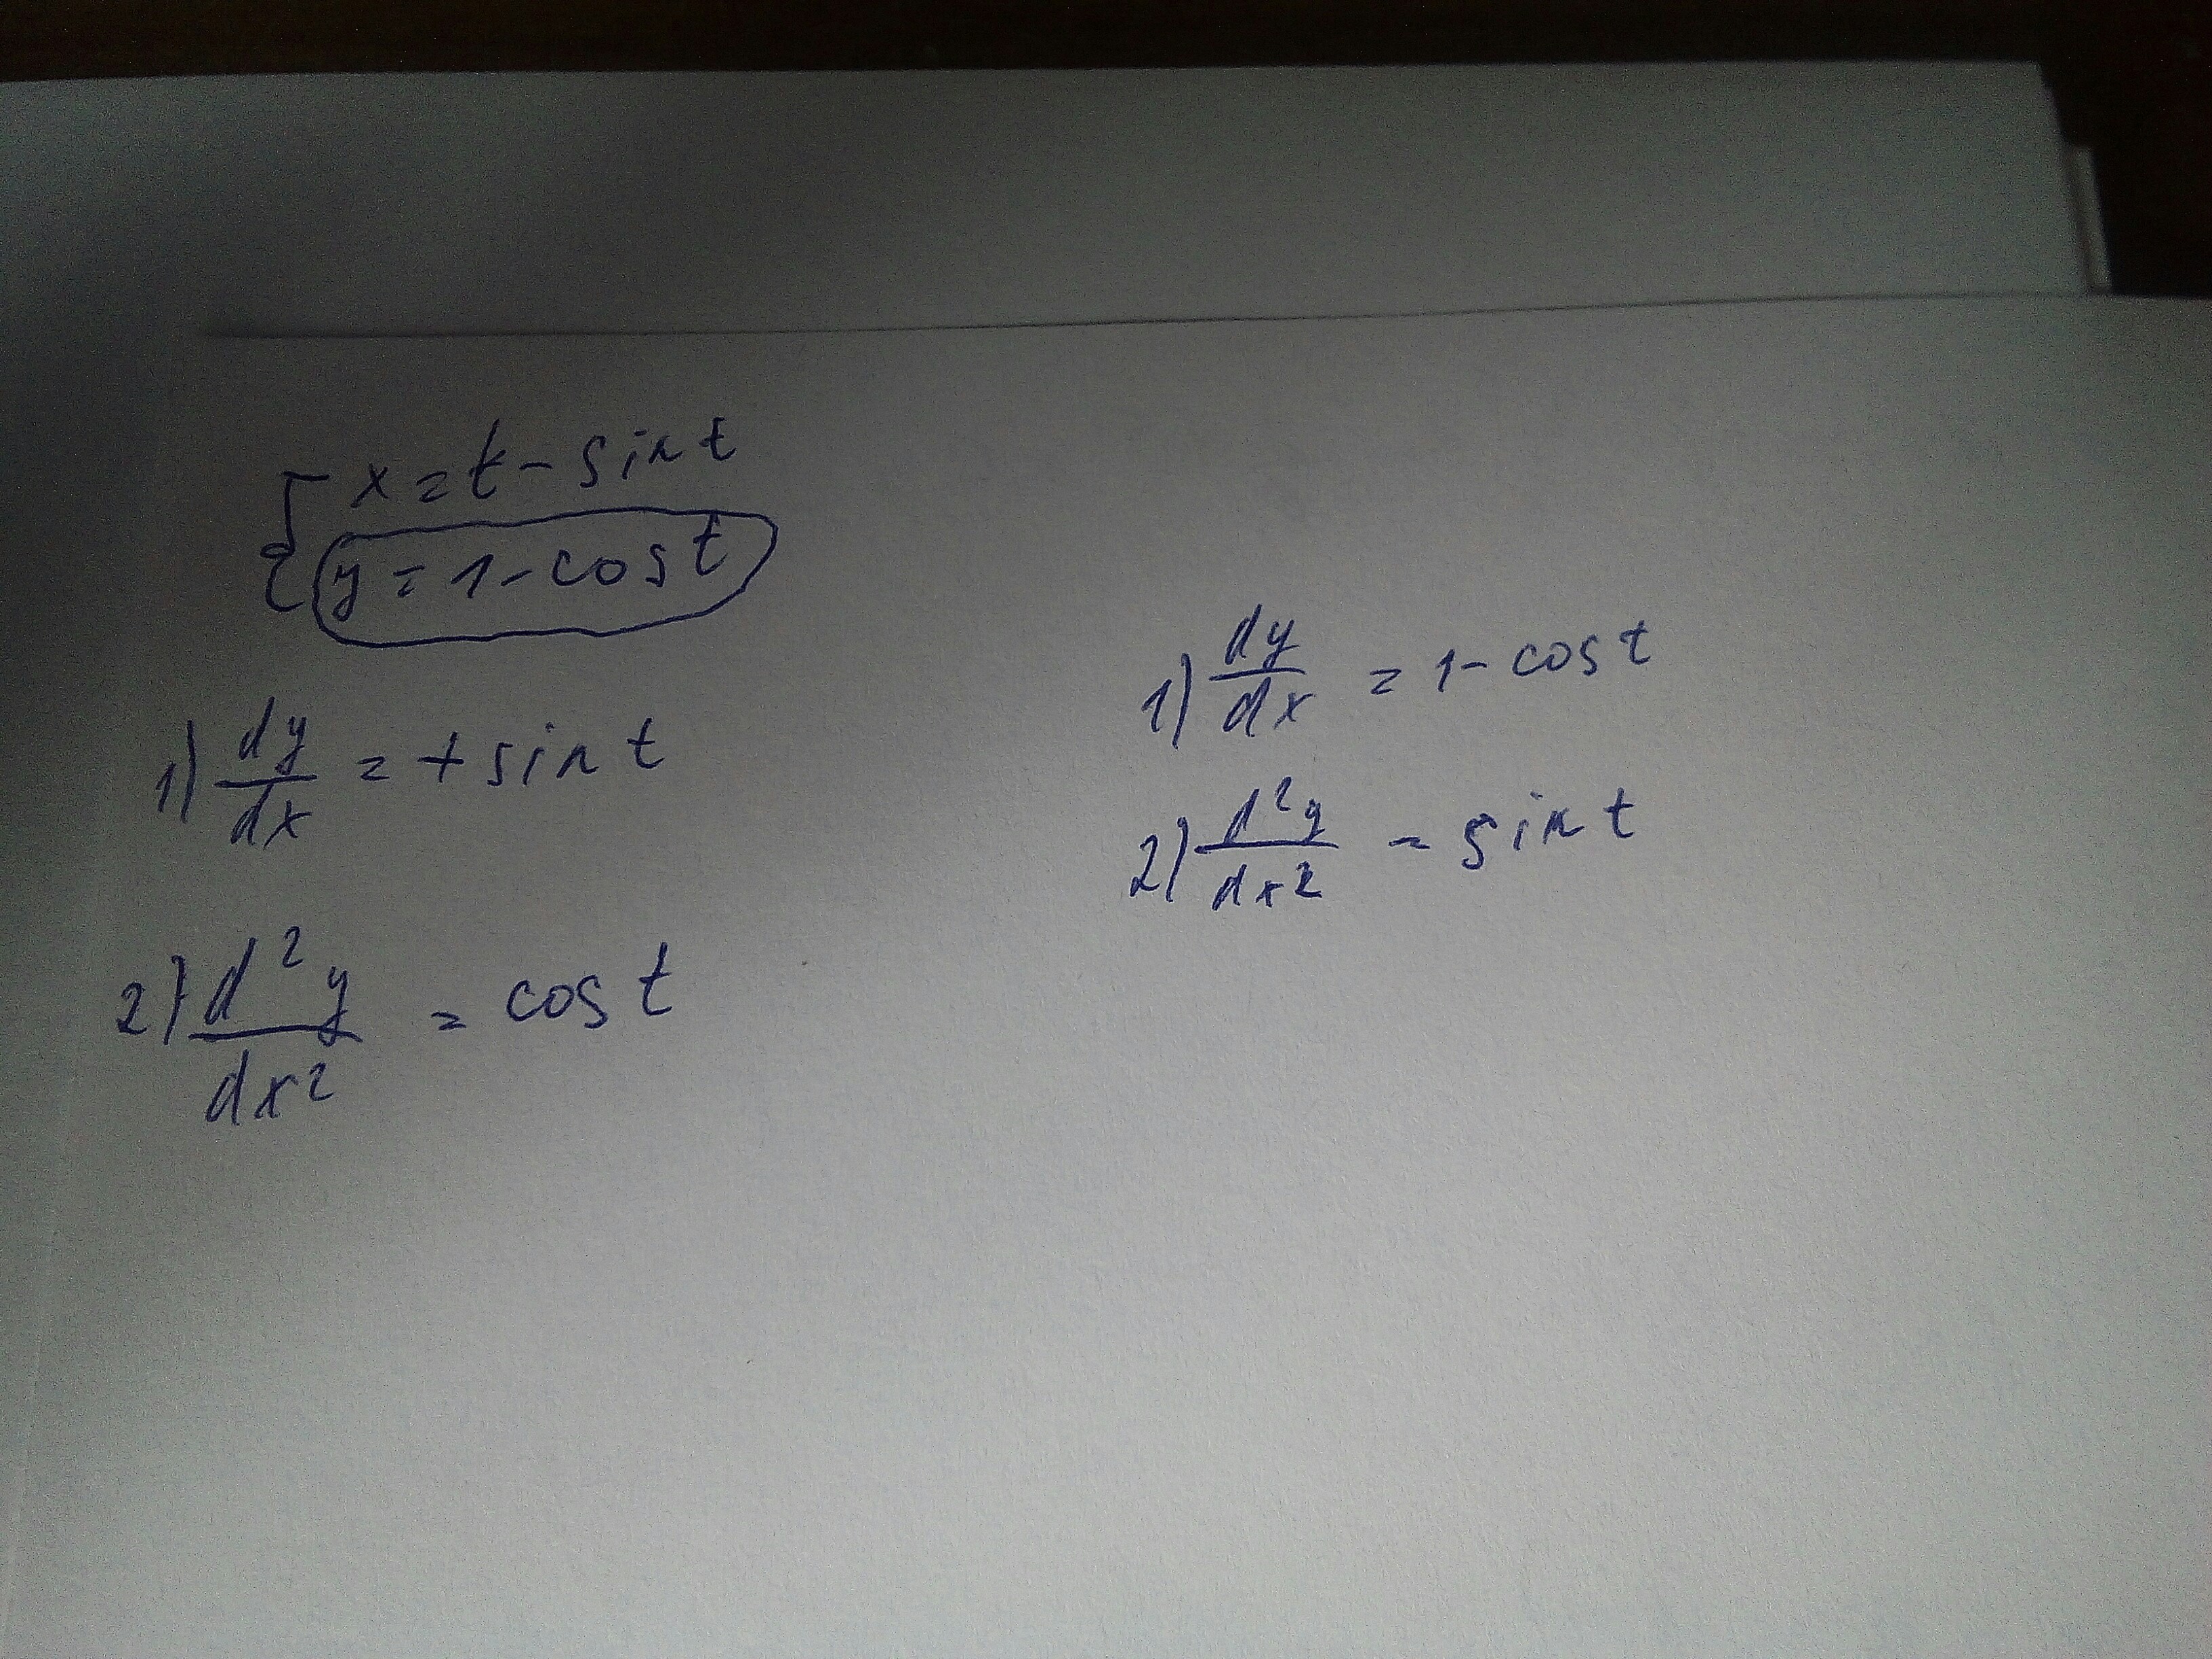 { x = t - sin t
y = 1 - cos t
1) dy/dx = + sin t
2) d²y/dx² = cos t
1) dy/dx = 1 - cos t
2) d²y/dx² = sin t